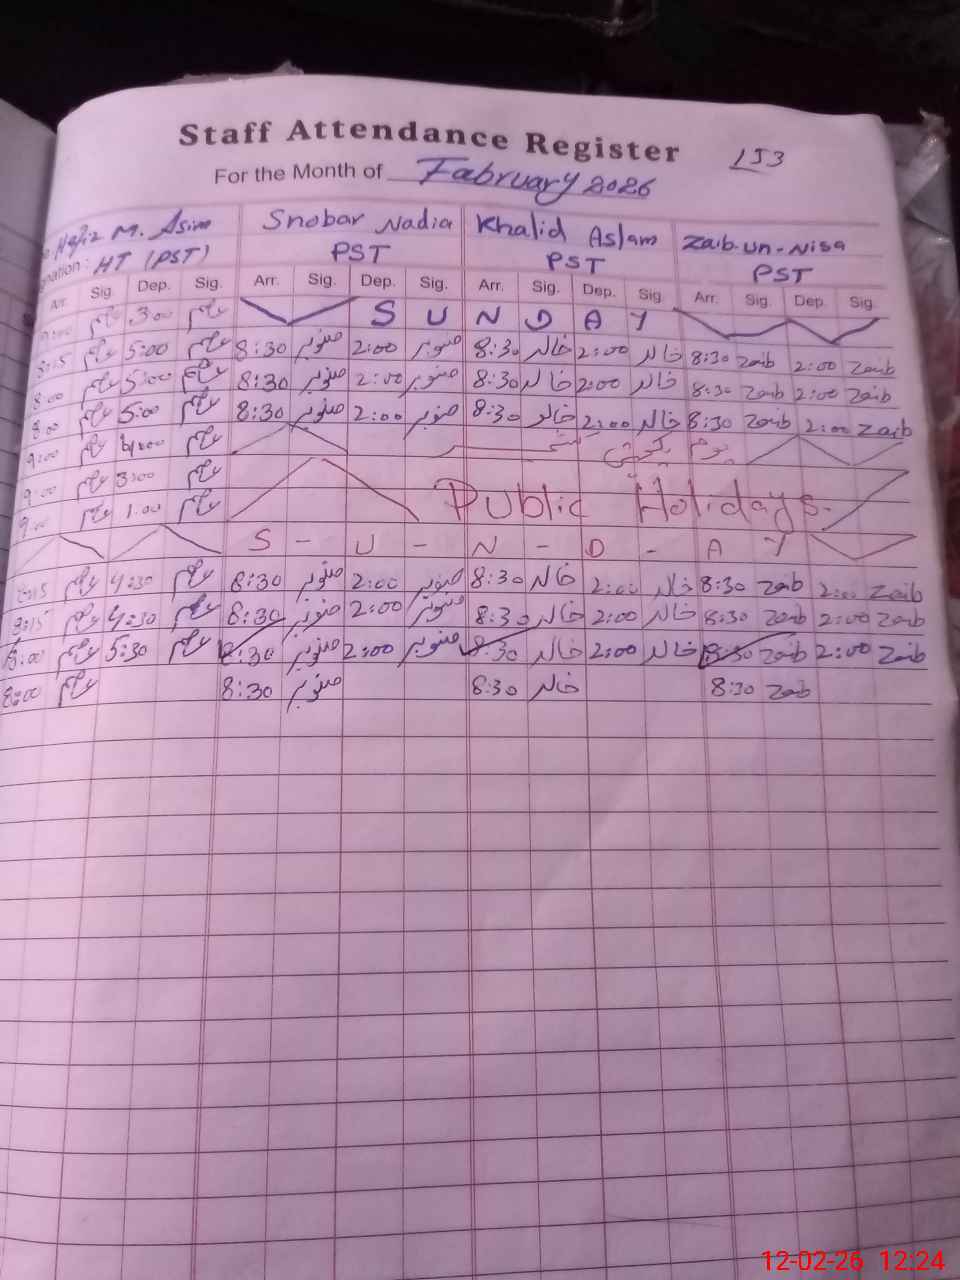 Staff Attendance Register
LJ3
For the Month of Fabruary 2026
Hafiz M. Asim Snobar Nadia Khalid Aslam Zaib-un-Nisa
HT (PST) PST PST PST
Arr. Sig. Dep. Sig. Arr. Sig. Dep. Sig. Arr. Sig. Dep. Sig. Arr. Sig. Dep. Sig.
9:00 3:00 S U N D A Y
8:15 5:00 8:30 صنوبر 2:00 صنوبر 8:30 خالد 2:00 خالد 8:30 zaib 2:00 Zaib
8:00 5:00 8:30 صنوبر 2:00 صنوبر 8:30 خالد 2:00 خالد 8:30 zaib 2:00 Zaib
8:00 5:00 8:30 صنوبر 2:00 صنوبر 8:30 خالد 2:00 خالد 8:30 Zaib 2:00 Zaib
9:00 4:00 یوم یکجہتی
9:00 3:00 Public Holidays.
9:00 1:00
S - U - N - D - A Y
4:30 8:30 صنوبر 2:00 صنوبر 8:30 خالد 2:00 خالد 8:30 Zaib 2:00 Zaib
4:30 8:30 صنوبر 2:00 صنوبر 8:30 خالد 2:00 خالد 8:30 Zaib 2:00 Zaib
8:00 5:30 8:30 صنوبر 2:00 صنوبر 8:30 خالد 2:00 خالد 8:30 Zaib 2:00 Zaib
8:00 8:30 صنوبر 8:30 خالد 8:30 Zaib
12-02-26 12:24